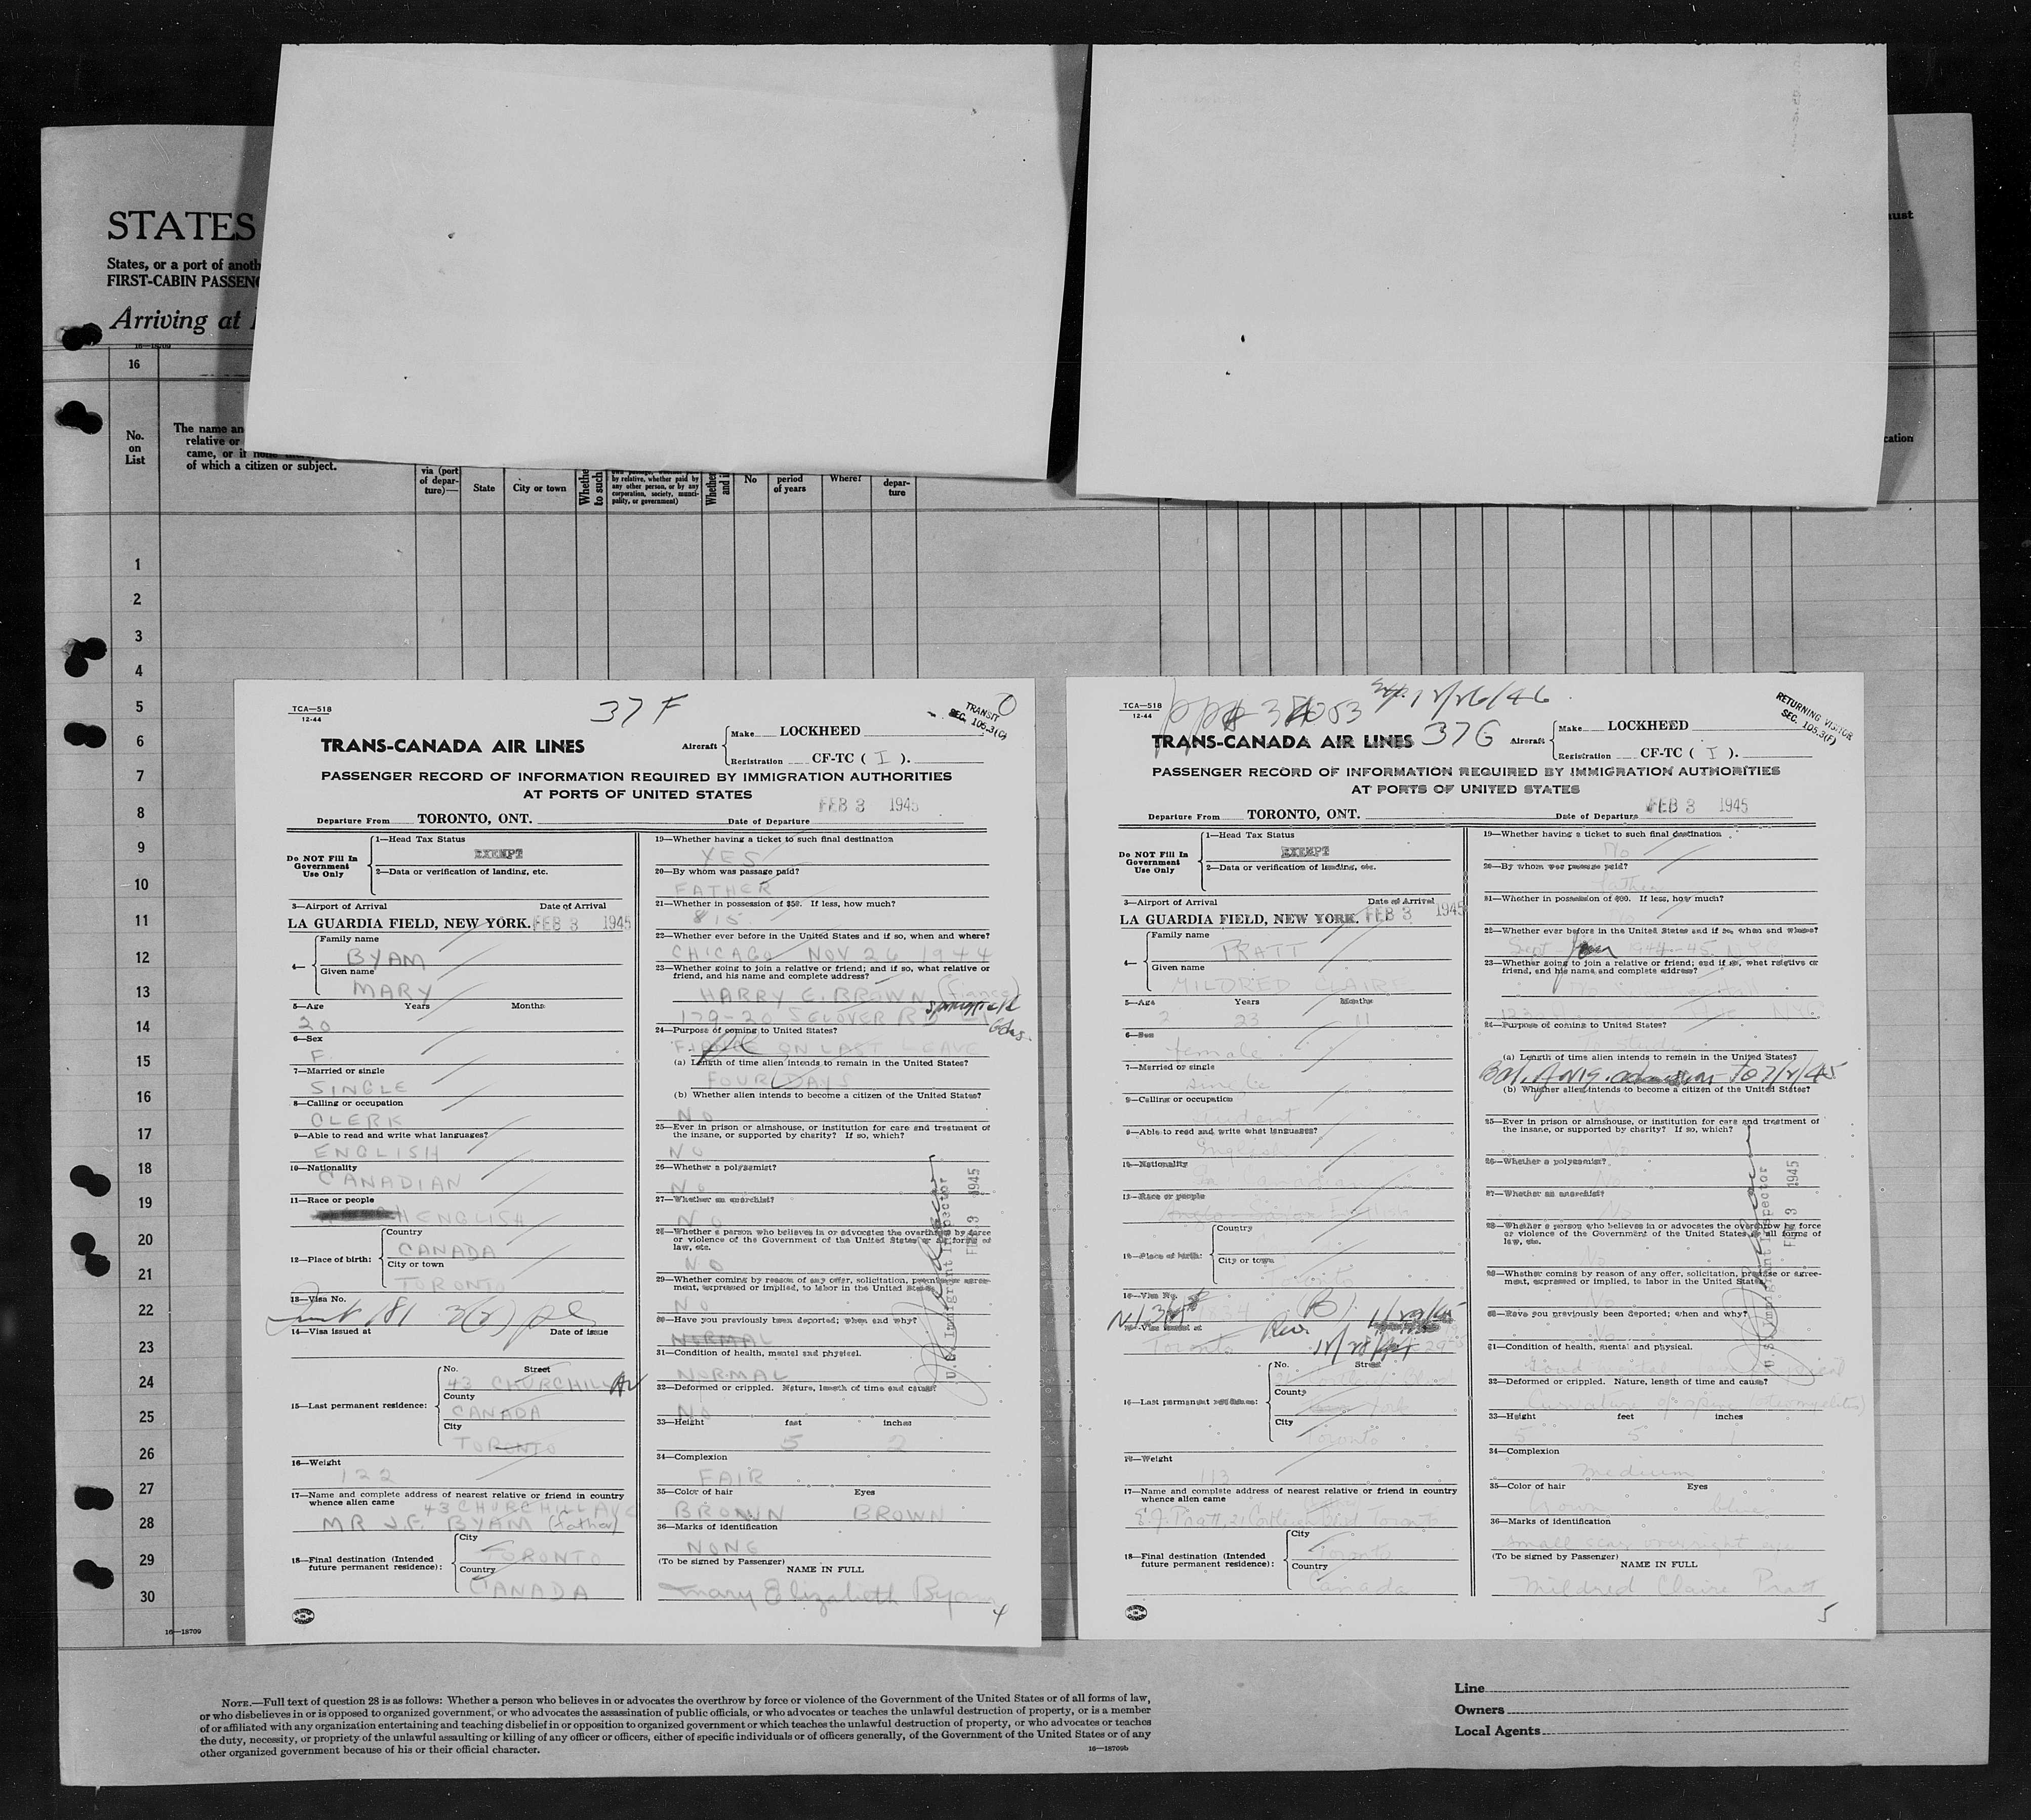 STATES
States, or a port of anoth
FIRST-CABIN PASSENG
Arriving at
16—18709
16
No.
on
List
The name an
relative or
came, or if none
of which a citizen or subject.
via (port
of depar-
ture)—
State
City or town
Whethe
to such
by relative, whether paid by
any other person, or by any
corporation, society, munici-
pality, or government)
No
period
of years
Where?
depar-
ture
ust
cation
1
2
3
4
5
6
7
8
9
10
11
12
13
14
15
16
17
18
19
20
21
22
23
24
25
26
27
28
29
30
16—18709
TCA—518
12-44
37 F
TRANSIT
SEC. 105.3(C)
TRANS-CANADA AIR LINES
Aircraft
Make LOCKHEED
Registration CF-TC ( I ).
PASSENGER RECORD OF INFORMATION REQUIRED BY IMMIGRATION AUTHORITIES
AT PORTS OF UNITED STATES
FEB 3 1945
Departure From TORONTO, ONT. Date of Departure
Do NOT Fill In
Government
Use Only
1—Head Tax Status
EXEMPT
2—Data or verification of landing, etc.
3—Airport of Arrival Date of Arrival
LA GUARDIA FIELD, NEW YORK. FEB 3 1945
4—
Family name
BYAM
Given name
MARY
5—Age Years Months
20
6—Sex
F.
7—Married or single
SINGLE
8—Calling or occupation
CLERK
9—Able to read and write what languages?
ENGLISH
10—Nationality
CANADIAN
11—Race or people
ENGLISH
12—Place of birth:
Country
CANADA
City or town
TORONTO
13—Visa No.
14—Visa issued at Date of issue
15—Last permanent residence:
No. Street
43 CHURCHILL AV
County
CANADA
City
TORONTO
16—Weight
122
17—Name and complete address of nearest relative or friend in country
whence alien came
43 CHURCHILL AVE
MR J.F. BYAM (father)
18—Final destination (Intended
future permanent residence):
City
TORONTO
Country
CANADA
19—Whether having a ticket to such final destination
YES
20—By whom was passage paid?
FATHER
21—Whether in possession of $50. If less, how much?
$15
22—Whether ever before in the United States and if so, when and where?
CHICAGO NOV 26 1944
23—Whether going to join a relative or friend; and if so, what relative or
friend, and his name and complete address?
HARRY E. BROWN (fiance)
179-20 SELOVER RD Springfield
Gdns.
24—Purpose of coming to United States?
FIANCE ON LAST LEAVE
(a) Length of time alien intends to remain in the United States?
FOUR DAYS
(b) Whether alien intends to become a citizen of the United States?
NO
25—Ever in prison or almshouse, or institution for care and treatment of
the insane, or supported by charity? If so, which?
NO
26—Whether a polygamist?
NO
27—Whether an anarchist?
NO
28—Whether a person who believes in or advocates the overthrow by force
or violence of the Government of the United States or all forms of
law, etc.
NO
29—Whether coming by reason of any offer, solicitation, promise or agree-
ment, expressed or implied, to labor in the United States.
NO
30—Have you previously been deported; when and why?
NORMAL
31—Condition of health, mental and physical.
NORMAL
32—Deformed or crippled. Nature, length of time and cause?
NO
33—Height feet inches
5 2
34—Complexion
FAIR
35—Color of hair Eyes
BROWN BROWN
36—Marks of identification
NONE
(To be signed by Passenger)
NAME IN FULL
Mary Elizabeth Byam
4
U.S. Immigrant Inspector
FEB 3 1945
TCA—518
12-44
12/26/46
RETURNING VISITOR
SEC. 105.3(F)
TRANS-CANADA AIR LINES 37G
Aircraft
Make LOCKHEED
Registration CF-TC ( I ).
PASSENGER RECORD OF INFORMATION REQUIRED BY IMMIGRATION AUTHORITIES
AT PORTS OF UNITED STATES
FEB 3 1945
Departure From TORONTO, ONT. Date of Departure
Do NOT Fill In
Government
Use Only
1—Head Tax Status
EXEMPT
2—Data or verification of landing, etc.
3—Airport of Arrival Date of Arrival
LA GUARDIA FIELD, NEW YORK. FEB 3 1945
4—
Family name
PRATT
Given name
MILDRED CLAIRE
5—Age Years Months
23 11
6—Sex
female
7—Married or single
single
8—Calling or occupation
student
9—Able to read and write what languages?
English
10—Nationality
Canadian
11—Race or people
12—Place of birth:
Country
City or town
Toronto
13—Visa No.
14—Visa issued at
Toronto
15—Last permanent residence:
No. Street
County
York
City
Toronto
16—Weight
113
17—Name and complete address of nearest relative or friend in country
whence alien came
E.J. Pratt, 21 Cortleigh Blvd Toronto
18—Final destination (Intended
future permanent residence):
City
Toronto
Country
Canada
19—Whether having a ticket to such final destination
No
20—By whom was passage paid?
father
21—Whether in possession of $50. If less, how much?
22—Whether ever before in the United States and if so, when and where?
Sept - Jan 1944-45
23—Whether going to join a relative or friend; and if so, what relative or
friend, and his name and complete address?
24—Purpose of coming to United States?
To study
(a) Length of time alien intends to remain in the United States?
Bal. of orig. admission to 7/2/45
(b) Whether alien intends to become a citizen of the United States?
No
25—Ever in prison or almshouse, or institution for care and treatment of
the insane, or supported by charity? If so, which?
26—Whether a polygamist?
No
27—Whether an anarchist?
No
28—Whether a person who believes in or advocates the overthrow by force
or violence of the Government of the United States or all forms of
law, etc.
No
29—Whether coming by reason of any offer, solicitation, promise or agree-
ment, expressed or implied, to labor in the United States.
30—Have you previously been deported; when and why?
No
31—Condition of health, mental and physical.
Good
32—Deformed or crippled. Nature, length of time and cause?
Curvature of spine
33—Height feet inches
5 1
34—Complexion
medium
35—Color of hair Eyes
brown blue
36—Marks of identification
small scar over right eye
(To be signed by Passenger)
NAME IN FULL
Mildred Claire Pratt
5
U.S. Immigrant Inspector
FEB 3 1945
NOTE.—Full text of question 28 is as follows: Whether a person who believes in or advocates the overthrow by force or violence of the Government of the United States or of all forms of law,
or who disbelieves in or is opposed to organized government, or who advocates the assassination of public officials, or who advocates or teaches the unlawful destruction of property, or is a member
of or affiliated with any organization entertaining and teaching disbelief in or opposition to organized government or which teaches the unlawful destruction of property, or who advocates or teaches
the duty, necessity, or propriety of the unlawful assaulting or killing of any officer or officers, either of specific individuals or of officers generally, of the Government of the United States or of any
other organized government because of his or their official character.
16—18709b
Line
Owners
Local Agents